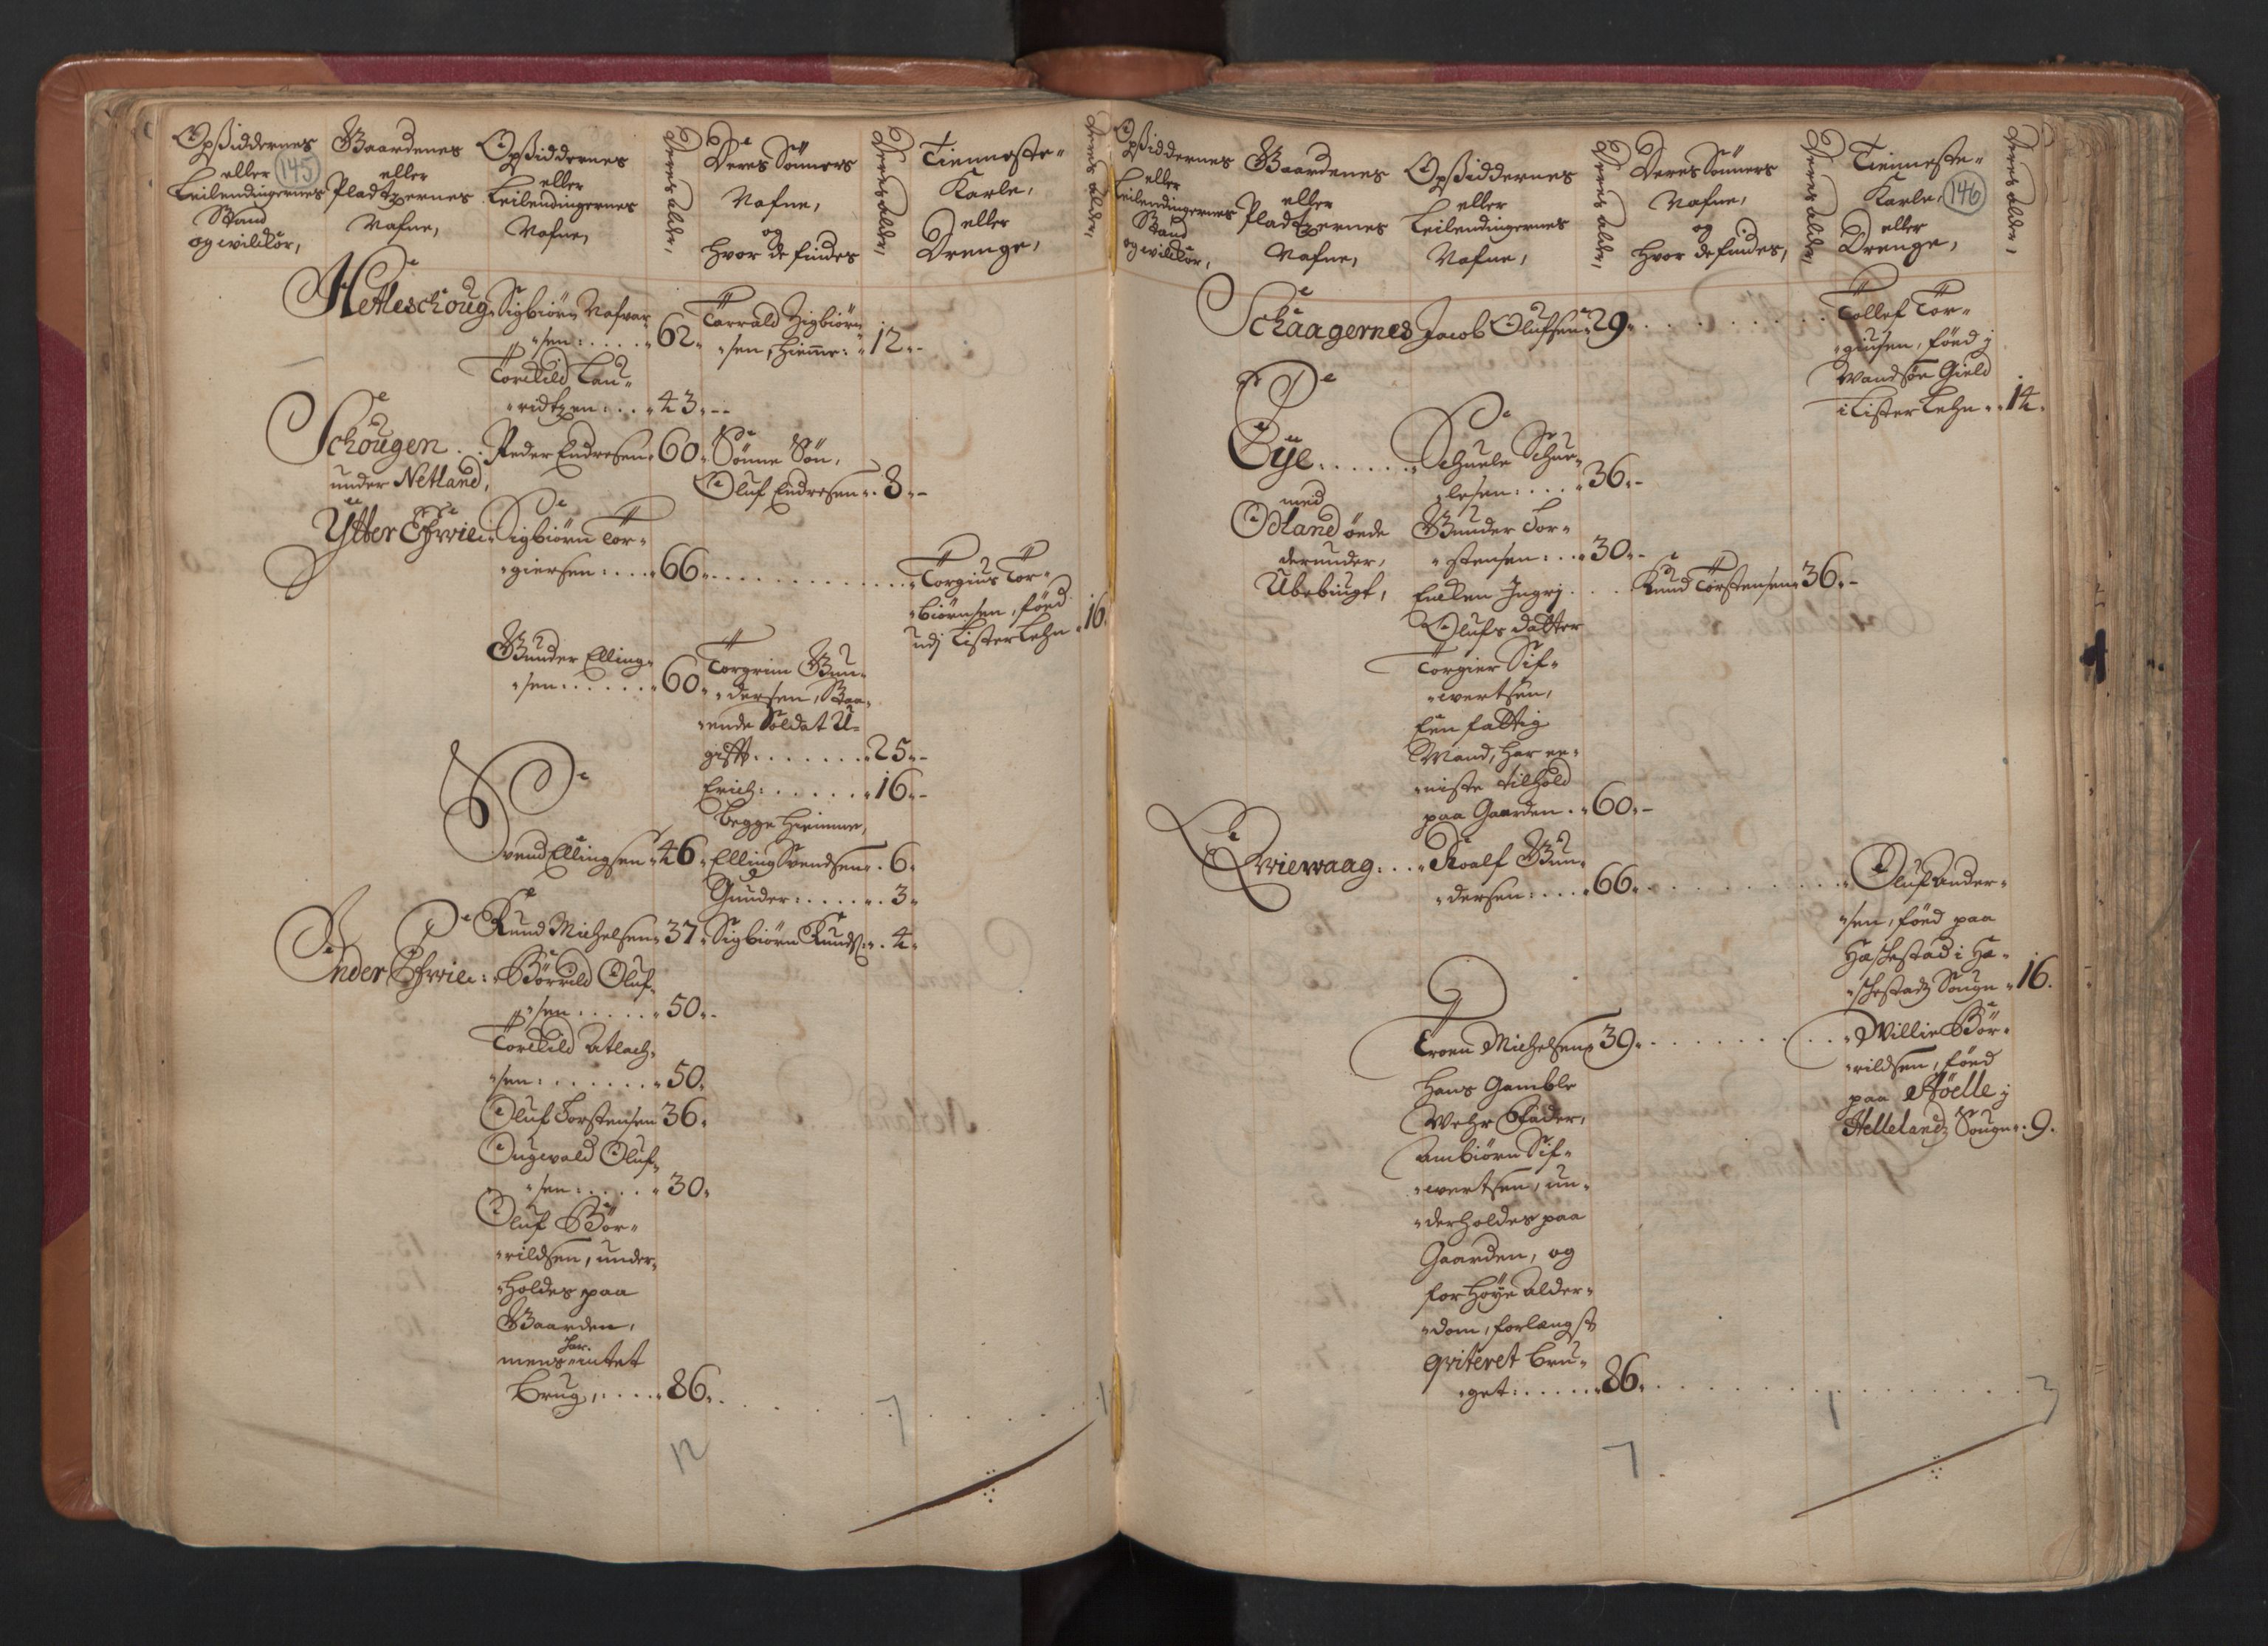 Opsiddernes
eller
Leilendingernes
Stand
og wilckor,
145
Gaardenes
eller
Pladtzernes
Nafne,
Opsiddernes
eller
Leilendingernes
Nafne,
Deres alder,
Deres Sönners
Nafne,
og
hvor de findes
Deres alder,
Tienneste-
Karle,
eller
Drenge,
Deres alder,
Hetleschoug Sigbiörn Nafvar-
sen: 62.
Tarrald Zigbiörn
sen, hieme: 12.
Torckild Lau-
ridtzen: 43.
Schougen Peder Endresen 60. Sönne Sön,
under Netland,
Oluf Endresen 8.
Ytter Sigbiörn Tor-
giersen: 66.
Torgius Tor-
biörnsen, föed
udj Lister Lehn 16.
Gunder Elling-
sen: 60.
Torgrim Gun-
dersen,
ende Soldat U-
gifft 25.
Erich: 16.
begge hiemme,
Svend Ellingsen 46. Elling Svendsen 6.
Gunder: 3.
Knud Michelsen 37. Sigbiörn Knuds: 4.
Inder Börrild Oluf-
sen 50.
Torckild Atlach-
sen: 50.
Oluf Torstensen 36.
Ougwald Oluf-
sen: 30.
Oluf Bör-
rildsen, under-
holdes paa
Gaarden,
har
mens intet
brug, 86.
7
1
12
Opsiddernes
eller
Leilendingernes
Stand
og wilckor,
Gaardenes
eller
Pladtzernes
Nafne,
Opsiddernes
eller
Leilendingernes
Nafne,
Deres alder,
Deres Sönners
Nafne,
og
hvor de findes,
Deres alder,
Tienneste-
Karle,
eller
Drenge,
146
Deres alder,
Schaagernes Jacob Olufsen 29.
Tollef Tor-
giusen, föed j
Wandsöe Gield
i Lister Lehn 14.
Öye Schuele Schue-
lesen: 36.
med
Odland öede
derunder,
Ubebiugt,
Gunder Tor-
stensen: 30.
Encken Ingrj Knud Torstensen 36.
Olufs datter
Torgier Sif-
wertsen,
Een fattig
Mand, har ee-
niste tilhold
paa Gaarden 60.
Roalf Gun-
dersen: 66.
Oluf Ander-
sen, föed paa
Hæschestad i Hæ-
schestadz Sougn 16.
Troen Michelsen 39.
Willie Bör-
rildsen, föed
paa Höelle j
Hellelandz Sougn 9.
Hans Gamble
Wehr Fader,
Ambiörn Sif-
wertsen, un-
derholdes paa
Gaarden, og
for höye alder-
dom, forlengst
qviteret bru-
get: 86.
1
7